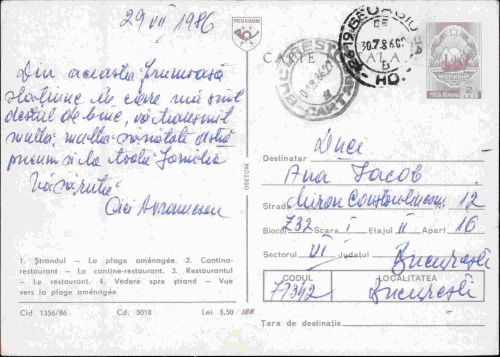 29 VII 1986
Din această frumoasă
stațiune în care mă simt
destul de bine, vă transmit
multă, multă sănătate dvs
precum și la toată familia
Vă sărută
POȘTA ROMÂNĂ
CARTE
BUCUREȘTI
CARTARE
30.7.86
ROMÂNIA
POȘTA ROMÂNĂ
2 LEI
Destinatar Duci
Ana Iacob
Strada Miron Constantinescu Nr. 12
Blocul Z32 Scara I Etajul II Apart 16
Sectorul VI Județul București
CODUL LOCALITATEA
77342 București
Țara de destinație
OSETCM
1. Ștrandul — La plage aménagée. -2. Cantina-
restaurant — La cantine-restaurant. 3. Restaurantul
- Le restaurant. 4. Vedere spre ștrand — Vue
vers la plage aménagée
Cid 1356/86 Cd. 5018 Lei 3,50